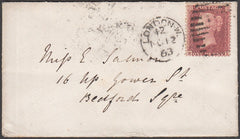 LONDON-W
42
63
POSTAGE
Miss E. Salmon
16 Up Gower St
Bedford Sqre